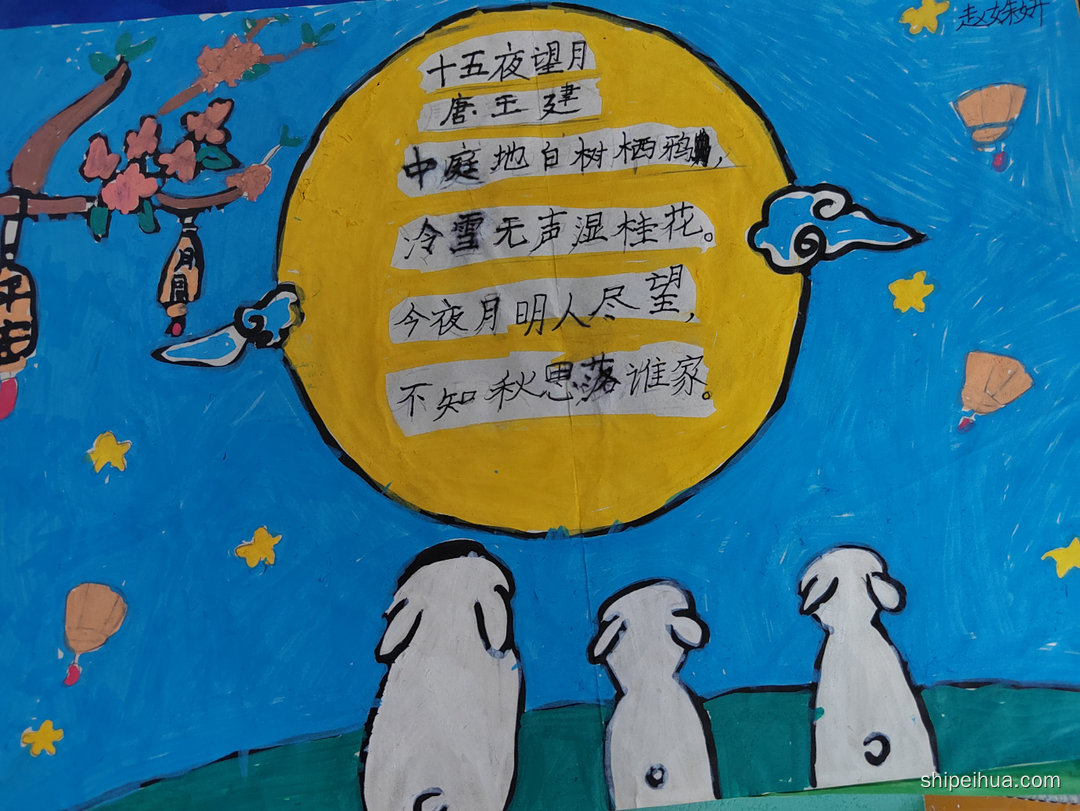 赵姝妍
十五夜望月
唐王建
中庭地白树栖鸦,
冷雪无声湿桂花。
今夜月明人尽望,
不知秋思落谁家。
shipeihua.com